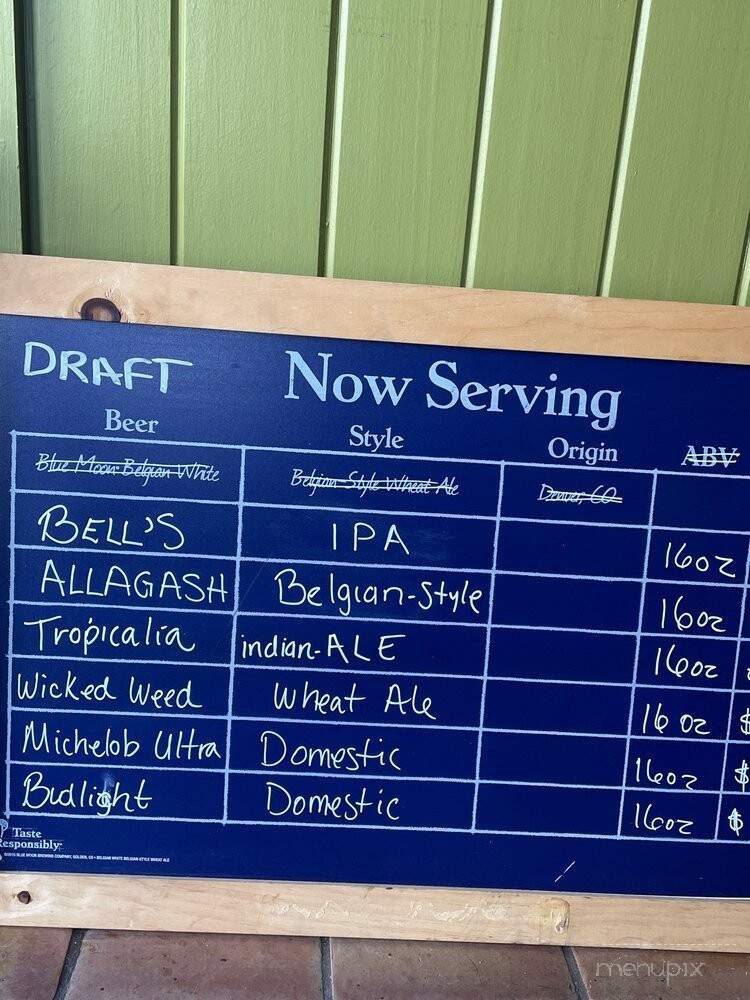 DRAFT Now Serving
Beer Style Origin ABV
Blue Moon Belgian White Belgian-Style Wheat Ale Denver, CO
BELL'S IPA 16oz
ALLAGASH Belgian-Style 16oz
Tropicalia indian-ALE 16oz
Wicked Weed Wheat Ale 16 oz $
Michelob Ultra Domestic 16oz $
Budlight Domestic 16oz $
Taste
Responsibly
©2015 BLUE MOON BREWING COMPANY, GOLDEN, CO • BELGIAN WHITE BELGIAN-STYLE WHEAT ALE
menupix